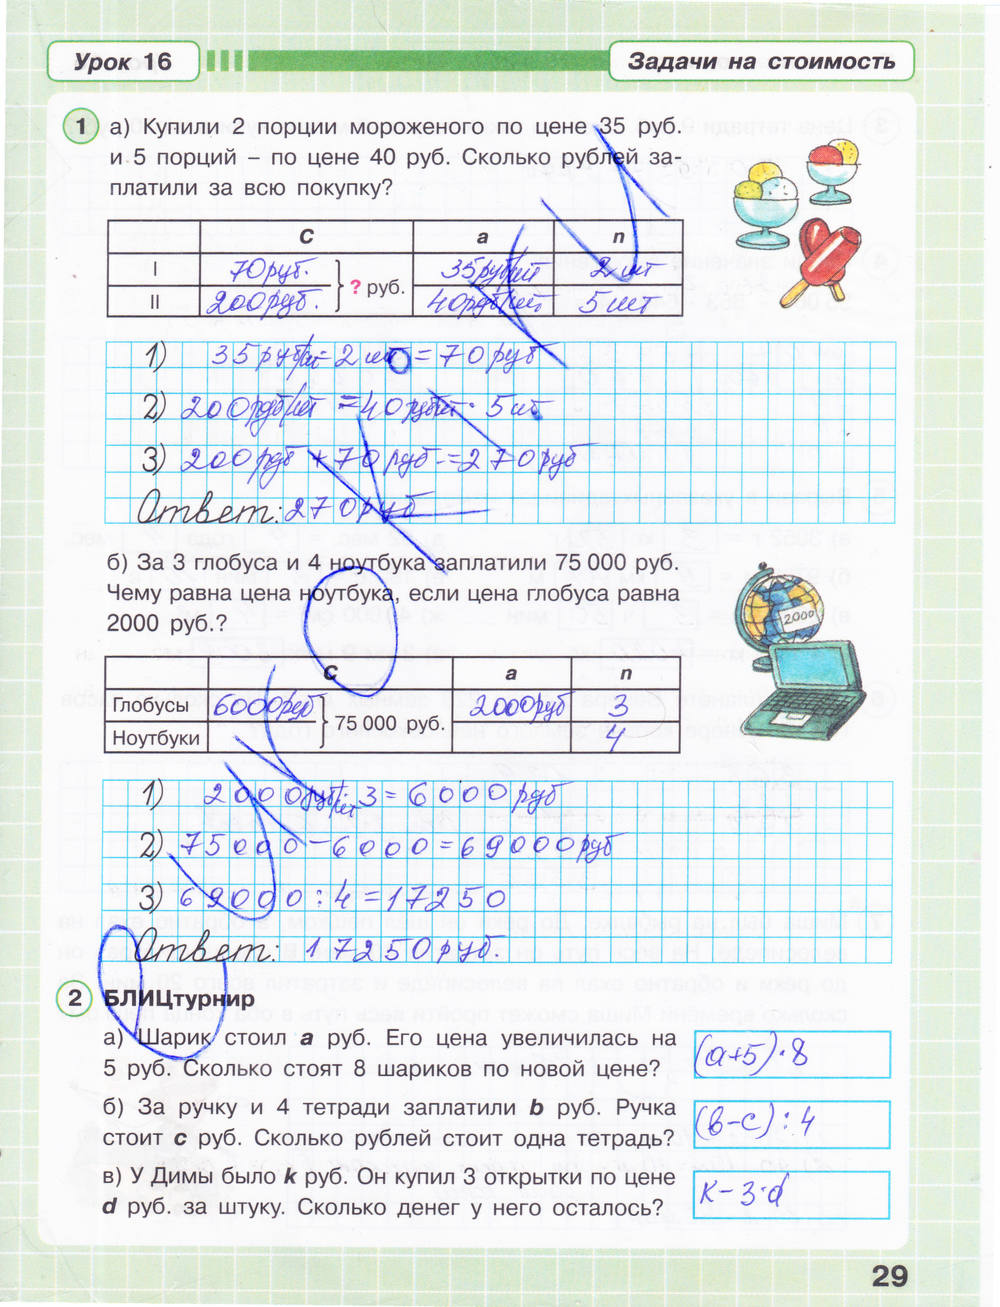 Урок 16
Задачи на стоимость
1 а) Купили 2 порции мороженого по цене 35 руб.
и 5 порций – по цене 40 руб. Сколько рублей за-
платили за всю покупку?
С а n
I 70 руб. 35 руб/шт 2 шт
? руб.
II 200 руб. 40 руб/шт 5 шт
1) 35 руб/шт · 2 шт = 70 руб
2) 200 руб/шт = 40 руб/шт · 5 шт
3) 200 руб + 70 руб = 270 руб
Ответ: 270 руб
б) За 3 глобуса и 4 ноутбука заплатили 75 000 руб.
Чему равна цена ноутбука, если цена глобуса равна
2000 руб.?
2000
С а n
Глобусы 6000 руб 2000 руб 3
75 000 руб.
Ноутбуки 4
1) 2000 руб/шт · 3 = 6000 руб
2) 75000 – 6000 = 69000 руб
3) 69000 : 4 = 17250
Ответ: 17250 руб.
2 БЛИЦтурнир
а) Шарик стоил a руб. Его цена увеличилась на
5 руб. Сколько стоят 8 шариков по новой цене?
(a+5)·8
б) За ручку и 4 тетради заплатили b руб. Ручка
стоит c руб. Сколько рублей стоит одна тетрадь?
(b–c):4
в) У Димы было k руб. Он купил 3 открытки по цене
d руб. за штуку. Сколько денег у него осталось?
к – 3·d
29